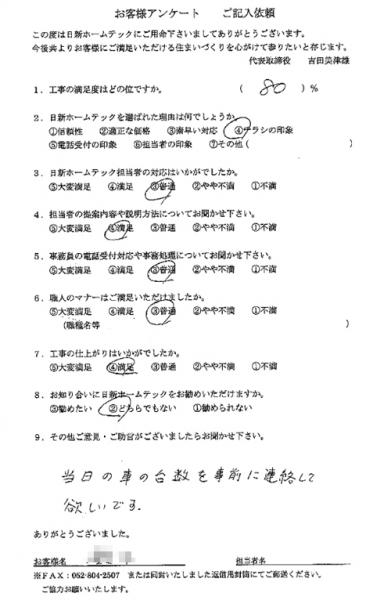 お客様アンケート ご記入依頼
この度は日新ホームテックにご用命下さいましてありがとうございます。
今後共よりお客様にご満足いただける住まいづくりを心がけて参りたいと存じます。
代表取締役 吉田美津雄
1．工事の満足度はどの位ですか。 ( 80 ) %
2．日新ホームテックを選ばれた理由は何でしょうか。
①信頼性 ②適正な価格 ③素早い対応 ④チラシの印象
⑤電話受付の印象 ⑥担当者の印象 ⑦その他 (
3．日新ホームテック担当者の対応はいかがでしたか。
⑤大変満足 ④満足 ③普通 ②やや不満 ①不満
4．担当者の提案内容や説明方法についてお聞かせ下さい。
⑤大変満足 ④満足 ③普通 ②やや不満 ①不満
5．事務員の電話受付対応や事務処理についてお聞かせ下さい。
⑤大変満足 ④満足 ③普通 ②やや不満 ①不満
6．職人のマナーはご満足いただけましたか。
⑤大変満足 ④満足 ③普通 ②やや不満 ①不満
(職種名等 )
7．工事の仕上がりはいかがでしたか。
⑤大変満足 ④満足 ③普通 ②やや不満 ①不満
8．お知り合いに日新ホームテックをお勧めいただけますか。
③勧めたい ②どちらでもない ①勧められない
9．その他ご意見・ご助言がございましたらお聞かせ下さい。
当日の車の台数を事前に連絡して
欲しいです。
ありがとうございました。
お客様名 担当者名
※FAX：052-804-2507 または同封いたしました返信用封筒にてご郵送ください。
ご協力お願いいたします。